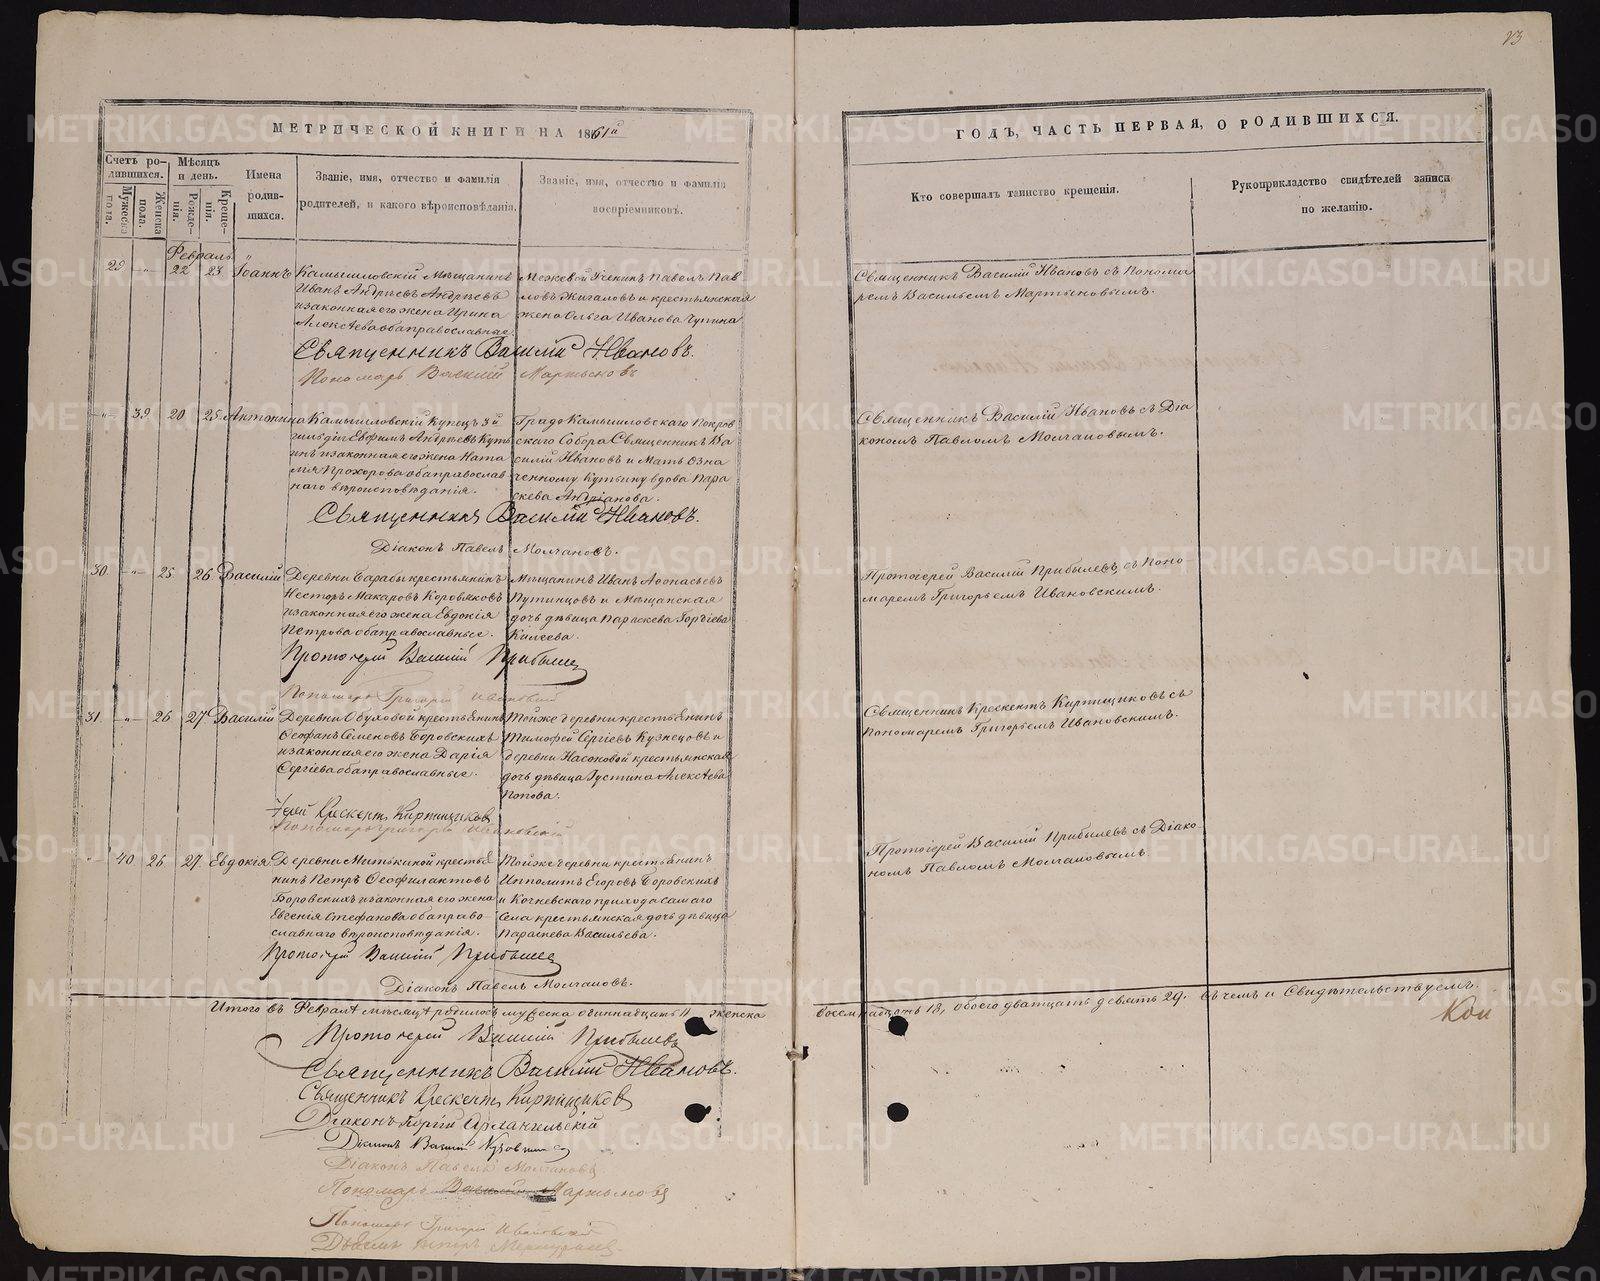 23
МЕТРИЧЕСКОЙ КНИГИ НА 1861й
ГОДЪ, ЧАСТЬ ПЕРВАЯ, О РОДИВШИХСЯ.
Счетъ родившихся.
Мужеска пола.
Женска пола.
Мѣсяцъ и день.
Рожденія.
Крещенія.
Имена родившихся.
Званіе, имя, отчество и фамилія
родителей, и какого вѣроисповѣданія.
Званіе, имя, отчество и фамилія
воспріемниковъ.
Кто совершалъ таинство крещенія.
Рукоприкладство свидѣтелей записи
по желанію.
Февраль
29 " 22 23 Іоаннъ
Камышловскій Мѣщанинъ
Иванъ Андреевъ Андреевъ
и законная его жена Ирина
Алексѣева оба православные.
Межевой Ученикъ Павелъ Пав
ловъ Жигаловъ и крестьянская
жена Ольга Иванова Чупина
Священникъ Василій Ивановъ съ Понома
ремъ Васильемъ Мартыновымъ.
Священникъ Василій Ивановъ.
Пономарь Василій Мартыновъ
" 39 20 25 Антонина
Камышловскій Купецъ 3й
гильдіи Евфимъ Андреевъ Кутъ
инъ и законная его жена Ната
лія Прохорова оба православ
наго вѣроисповѣданія.
Градо Камышловскаго Покров
скаго Собора Священникъ Ва
силій Ивановъ и Мать Озна
ченному Кутьину вдова Пара
скева Андріанова.
Священникъ Василій Ивановъ съ Діа
кономъ Павломъ Молчановымъ.
Священникъ Василій Ивановъ.
Діаконъ Павелъ Молчановъ.
30 " 25 26 Василій
Деревни Барабы крестьянинъ
Несторъ Макаровъ Коровяковъ
и законная его жена Евдокія
Петрова оба православные.
Мѣщанинъ Иванъ Аѳонасьевъ
Путинцовъ и Мѣщанская
дочь дѣвица Параскева Горгіева
Килеева.
Протоіерей Василій Прибылевъ съ Поно
маремъ Григорьемъ Ивановскимъ.
Протоіерей Василій Прибылевъ
Пономарь Григорій Ивановскій
31 " 26 27 Василій
Деревни Обуховой крестьянинъ
Ѳеофанъ Семеновъ Боровскихъ
и законная его жена Дарія
Сергіева оба православные.
Тойже деревни крестьянинъ
Тимофей Сергіевъ Кузнецовъ и
деревни Насоновой крестьянская
дочь дѣвица Іустина Алексѣева
Попова.
Священникъ Крескентъ Кирпищиковъ съ
Пономаремъ Григорьемъ Ивановскимъ.
Іерей Крескентъ Кирпищиковъ
Пономарь Григорій Ивановскій
" 40 26 27 Евдокія
Деревни Митькиной крестья
нинъ Петръ Ѳеофилактовъ
Боровскихъ и законная его жена
Евгенія Стефанова оба право
славнаго вѣроисповѣданія.
Тойже деревни крестьянинъ
Ипполитъ Егоровъ Боровскихъ
и Кочневскаго прихода самаго
Села крестьянская дочь дѣвица
Параскева Васильева.
Протоіерей Василій Прибылевъ съ Діако
номъ Павломъ Молчановымъ
Протоіерей Василій Прибылевъ
Діаконъ Павелъ Молчановъ.
Итого въ Февралѣ мѣсяцѣ родилось мужеска одиннадцать 11 женска
восемнадцать 18, обоего дватцать девять 29. Въ чемъ и Свидѣтельствуемъ.
Протоіерей Василій Прибылевъ
Священникъ Василій Ивановъ.
Священникъ Крескентъ Кирпищиковъ
Діаконъ Георгій Архангельскій
Діаконъ Василій
Діаконъ Павелъ Молчановъ
Пономарь Василій Мартыновъ
Пономарь Григорій Ивановскій
METRIKI.GASO-URAL.RU